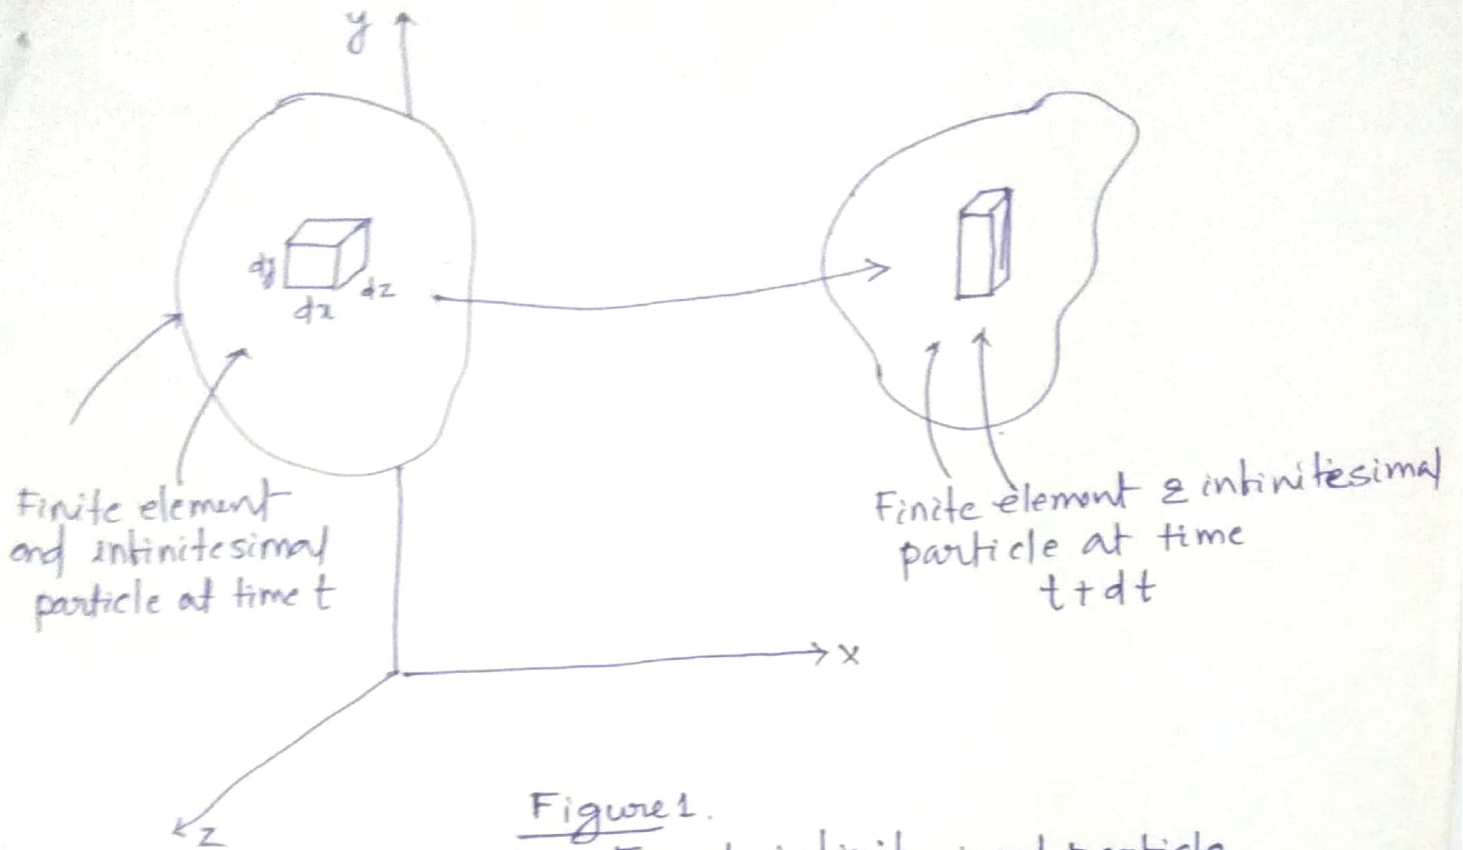 y
dy
dz
dx
Finite element
and infinitesimal
particle at time t
Finite element & infinitesimal
particle at time
t + dt
x
z
Figure 1.
particle